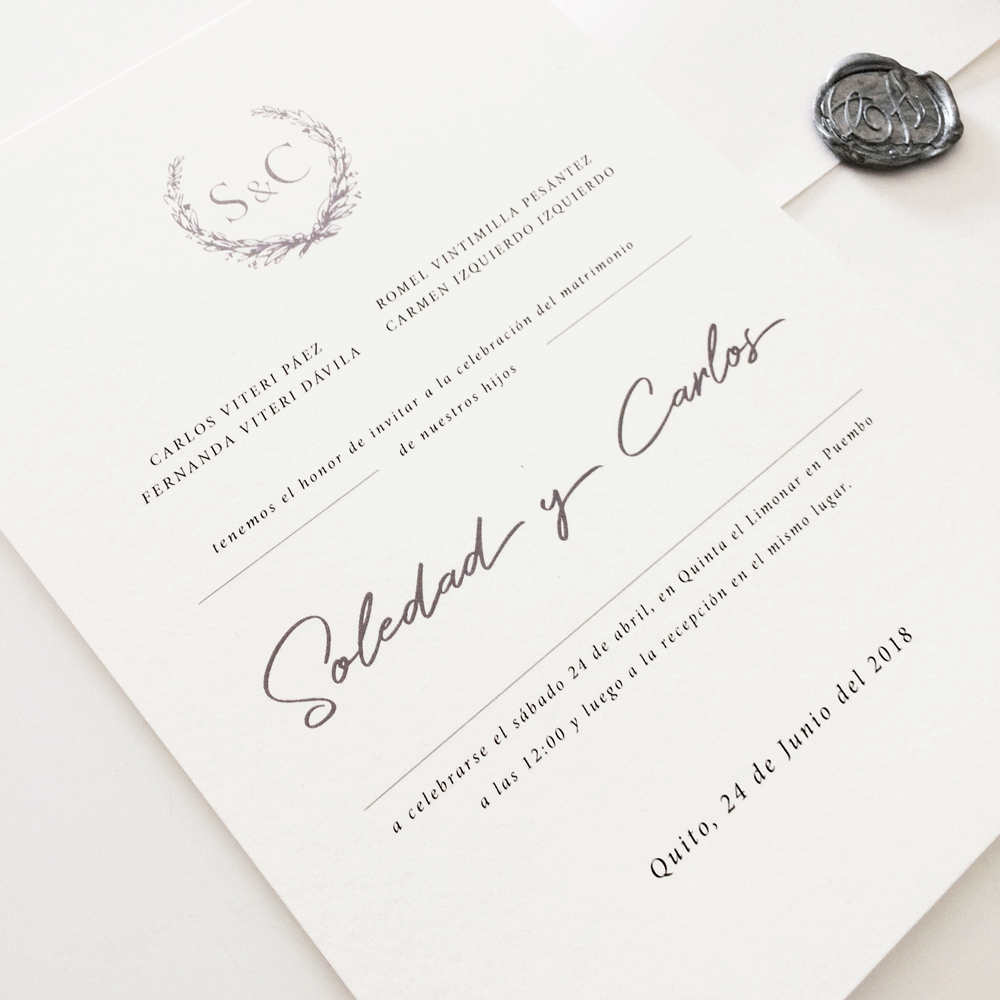 S & C
CARLOS VITERI PÁEZ
FERNANDA VITERI DÁVILA
ROMEL VINTIMILLA PESÁNTEZ
CARMEN IZQUIERDO IZQUIERDO
tenemos el honor de invitar a la celebración del matrimonio
de nuestros hijos
Soledad y Carlos
a celebrarse el sábado 24 de abril, en Quinta el Limonar en Puembo
a las 12:00 y luego a la recepción en el mismo lugar.
Quito, 24 de Junio del 2018